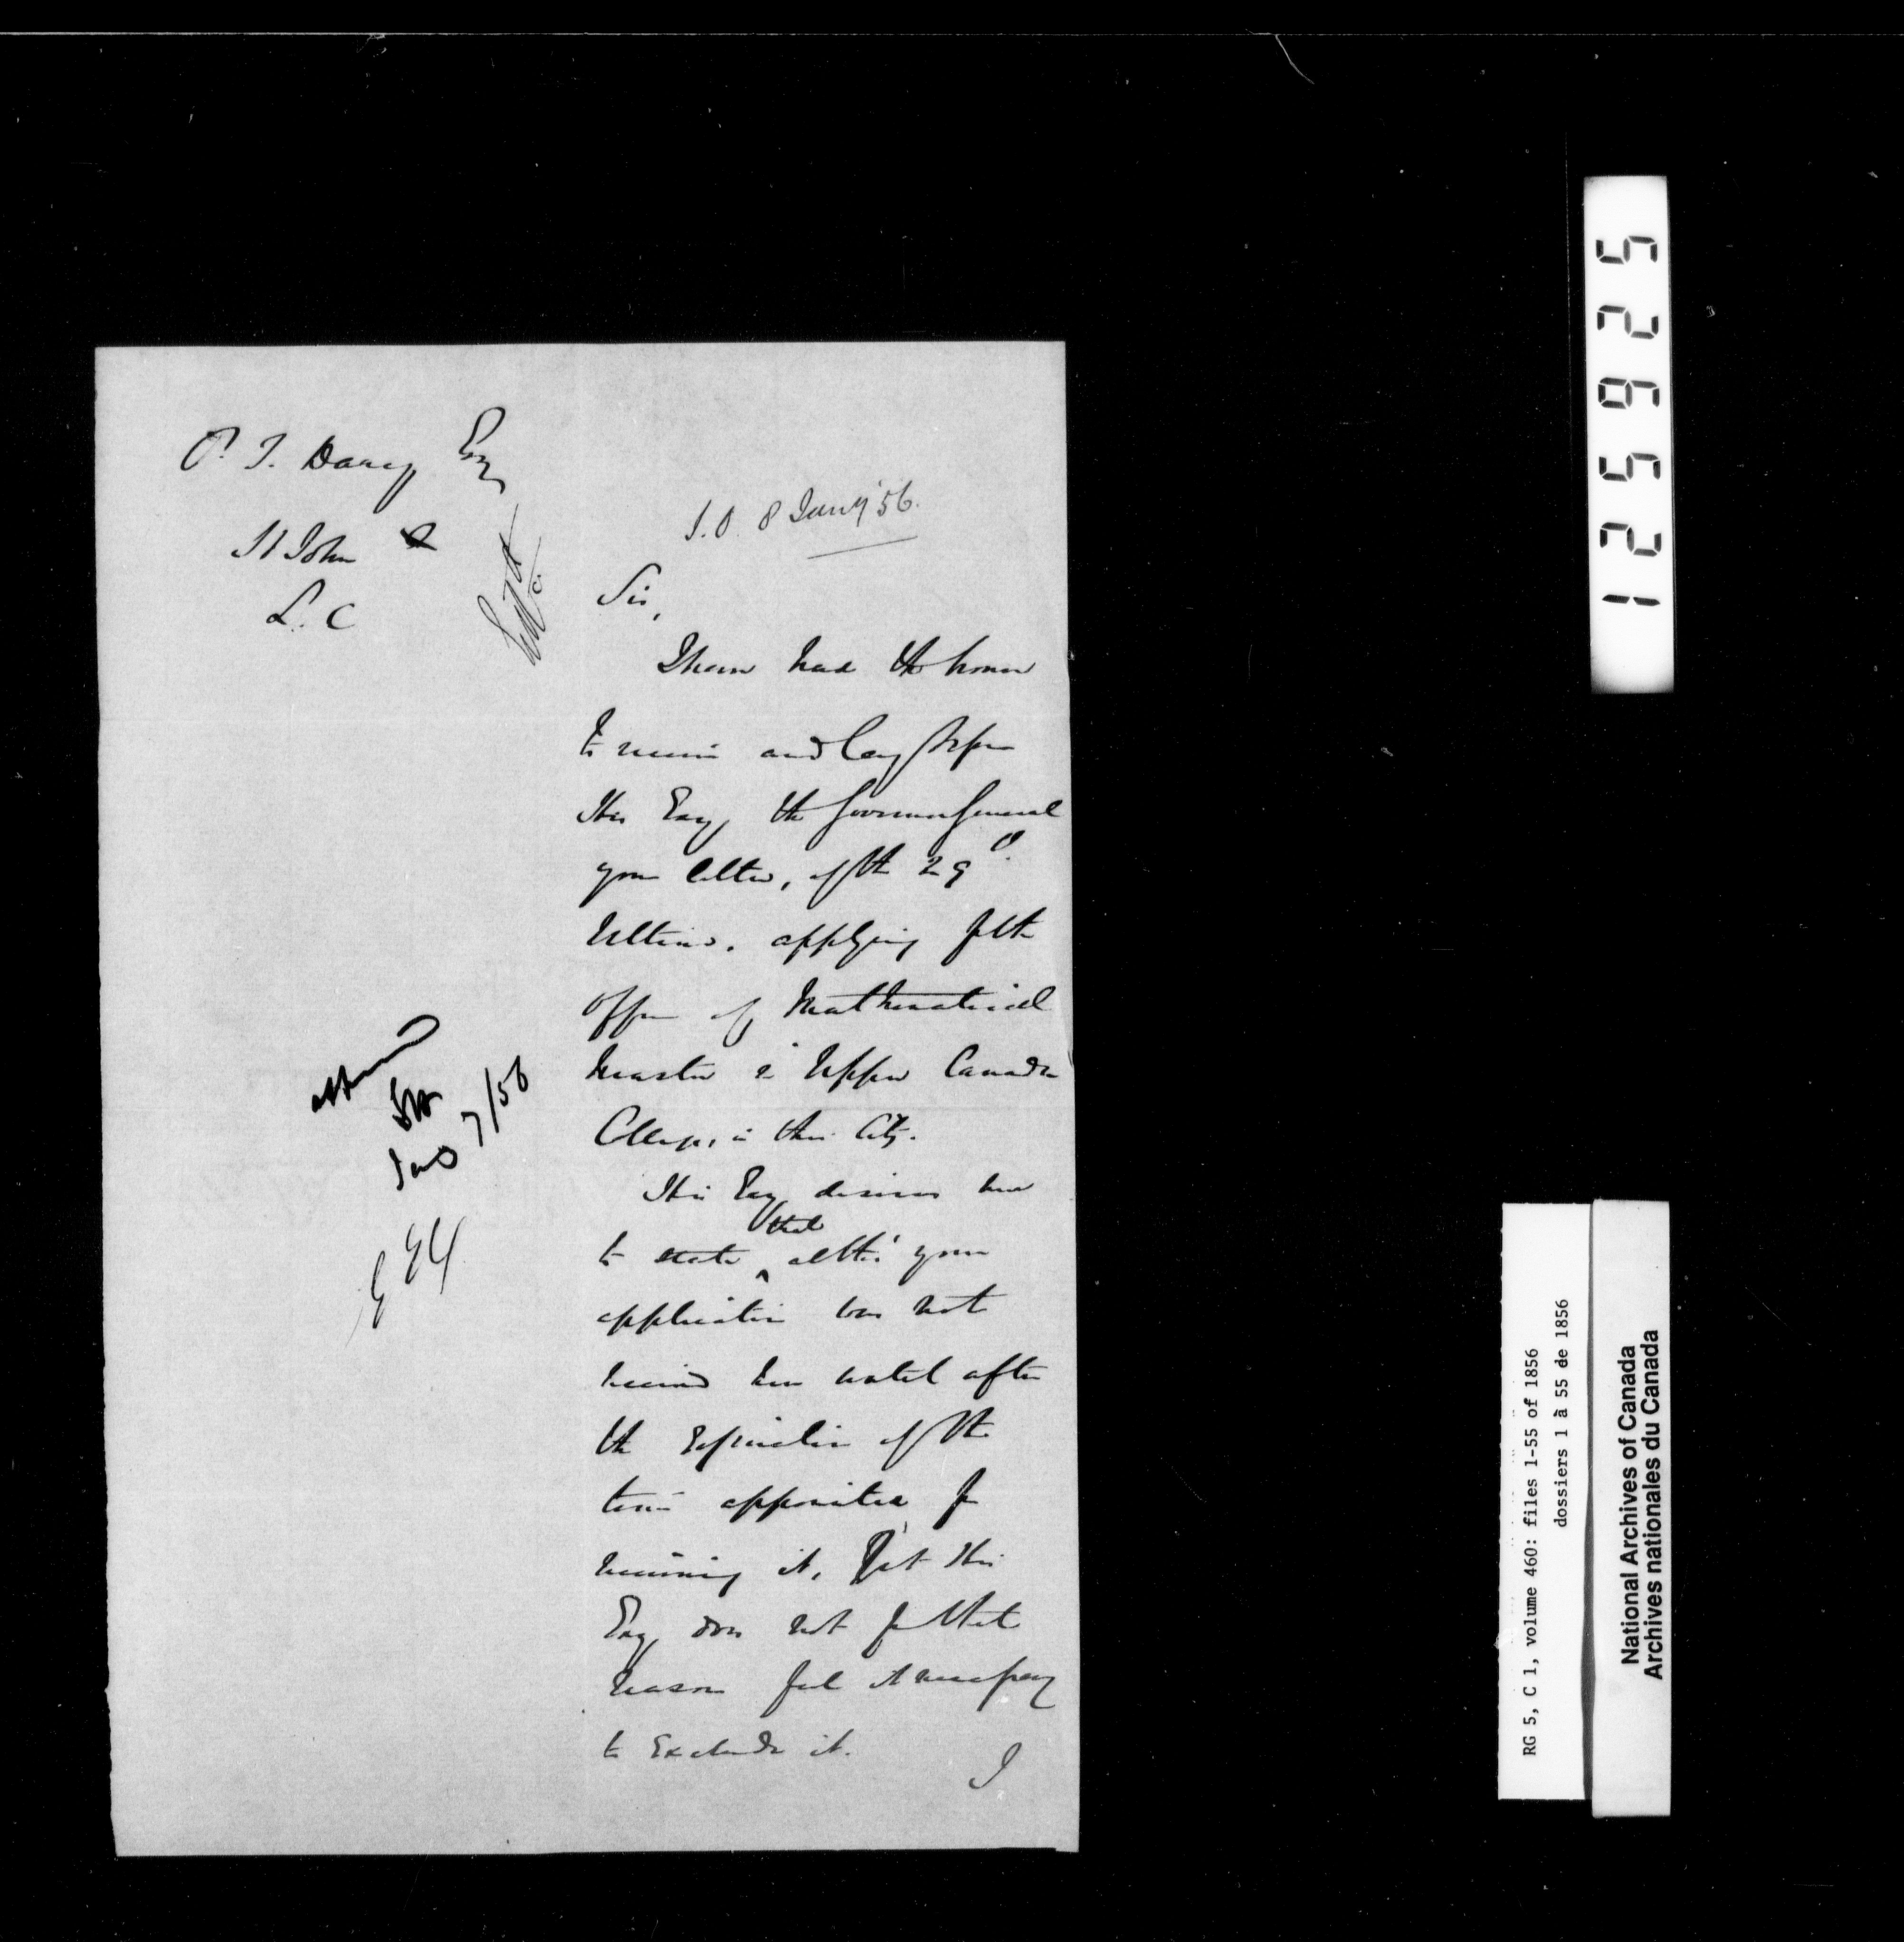 P. T. Darcy Esq
St John
L. C
S.O. 8 Jany '56.
Sir,
I have had the honor
to receive and lay before
His Excy the Governor General
your letter, of the 29th
Ultimo. applying for the
office of Mathematical
Master in Upper Canada
College, in this City.
His Excy desires me
to state that altho' your
application was not
received here until after
the expiration of the
term appointed for
receiving it, Yet His
Excy does not for that
reason feel it necessary
to exclude it.
I
Jan 7/56
125925
RG 5, C 1, volume 460: files 1-55 of 1856
dossiers 1 à 55 de 1856
National Archives of Canada
Archives nationales du Canada